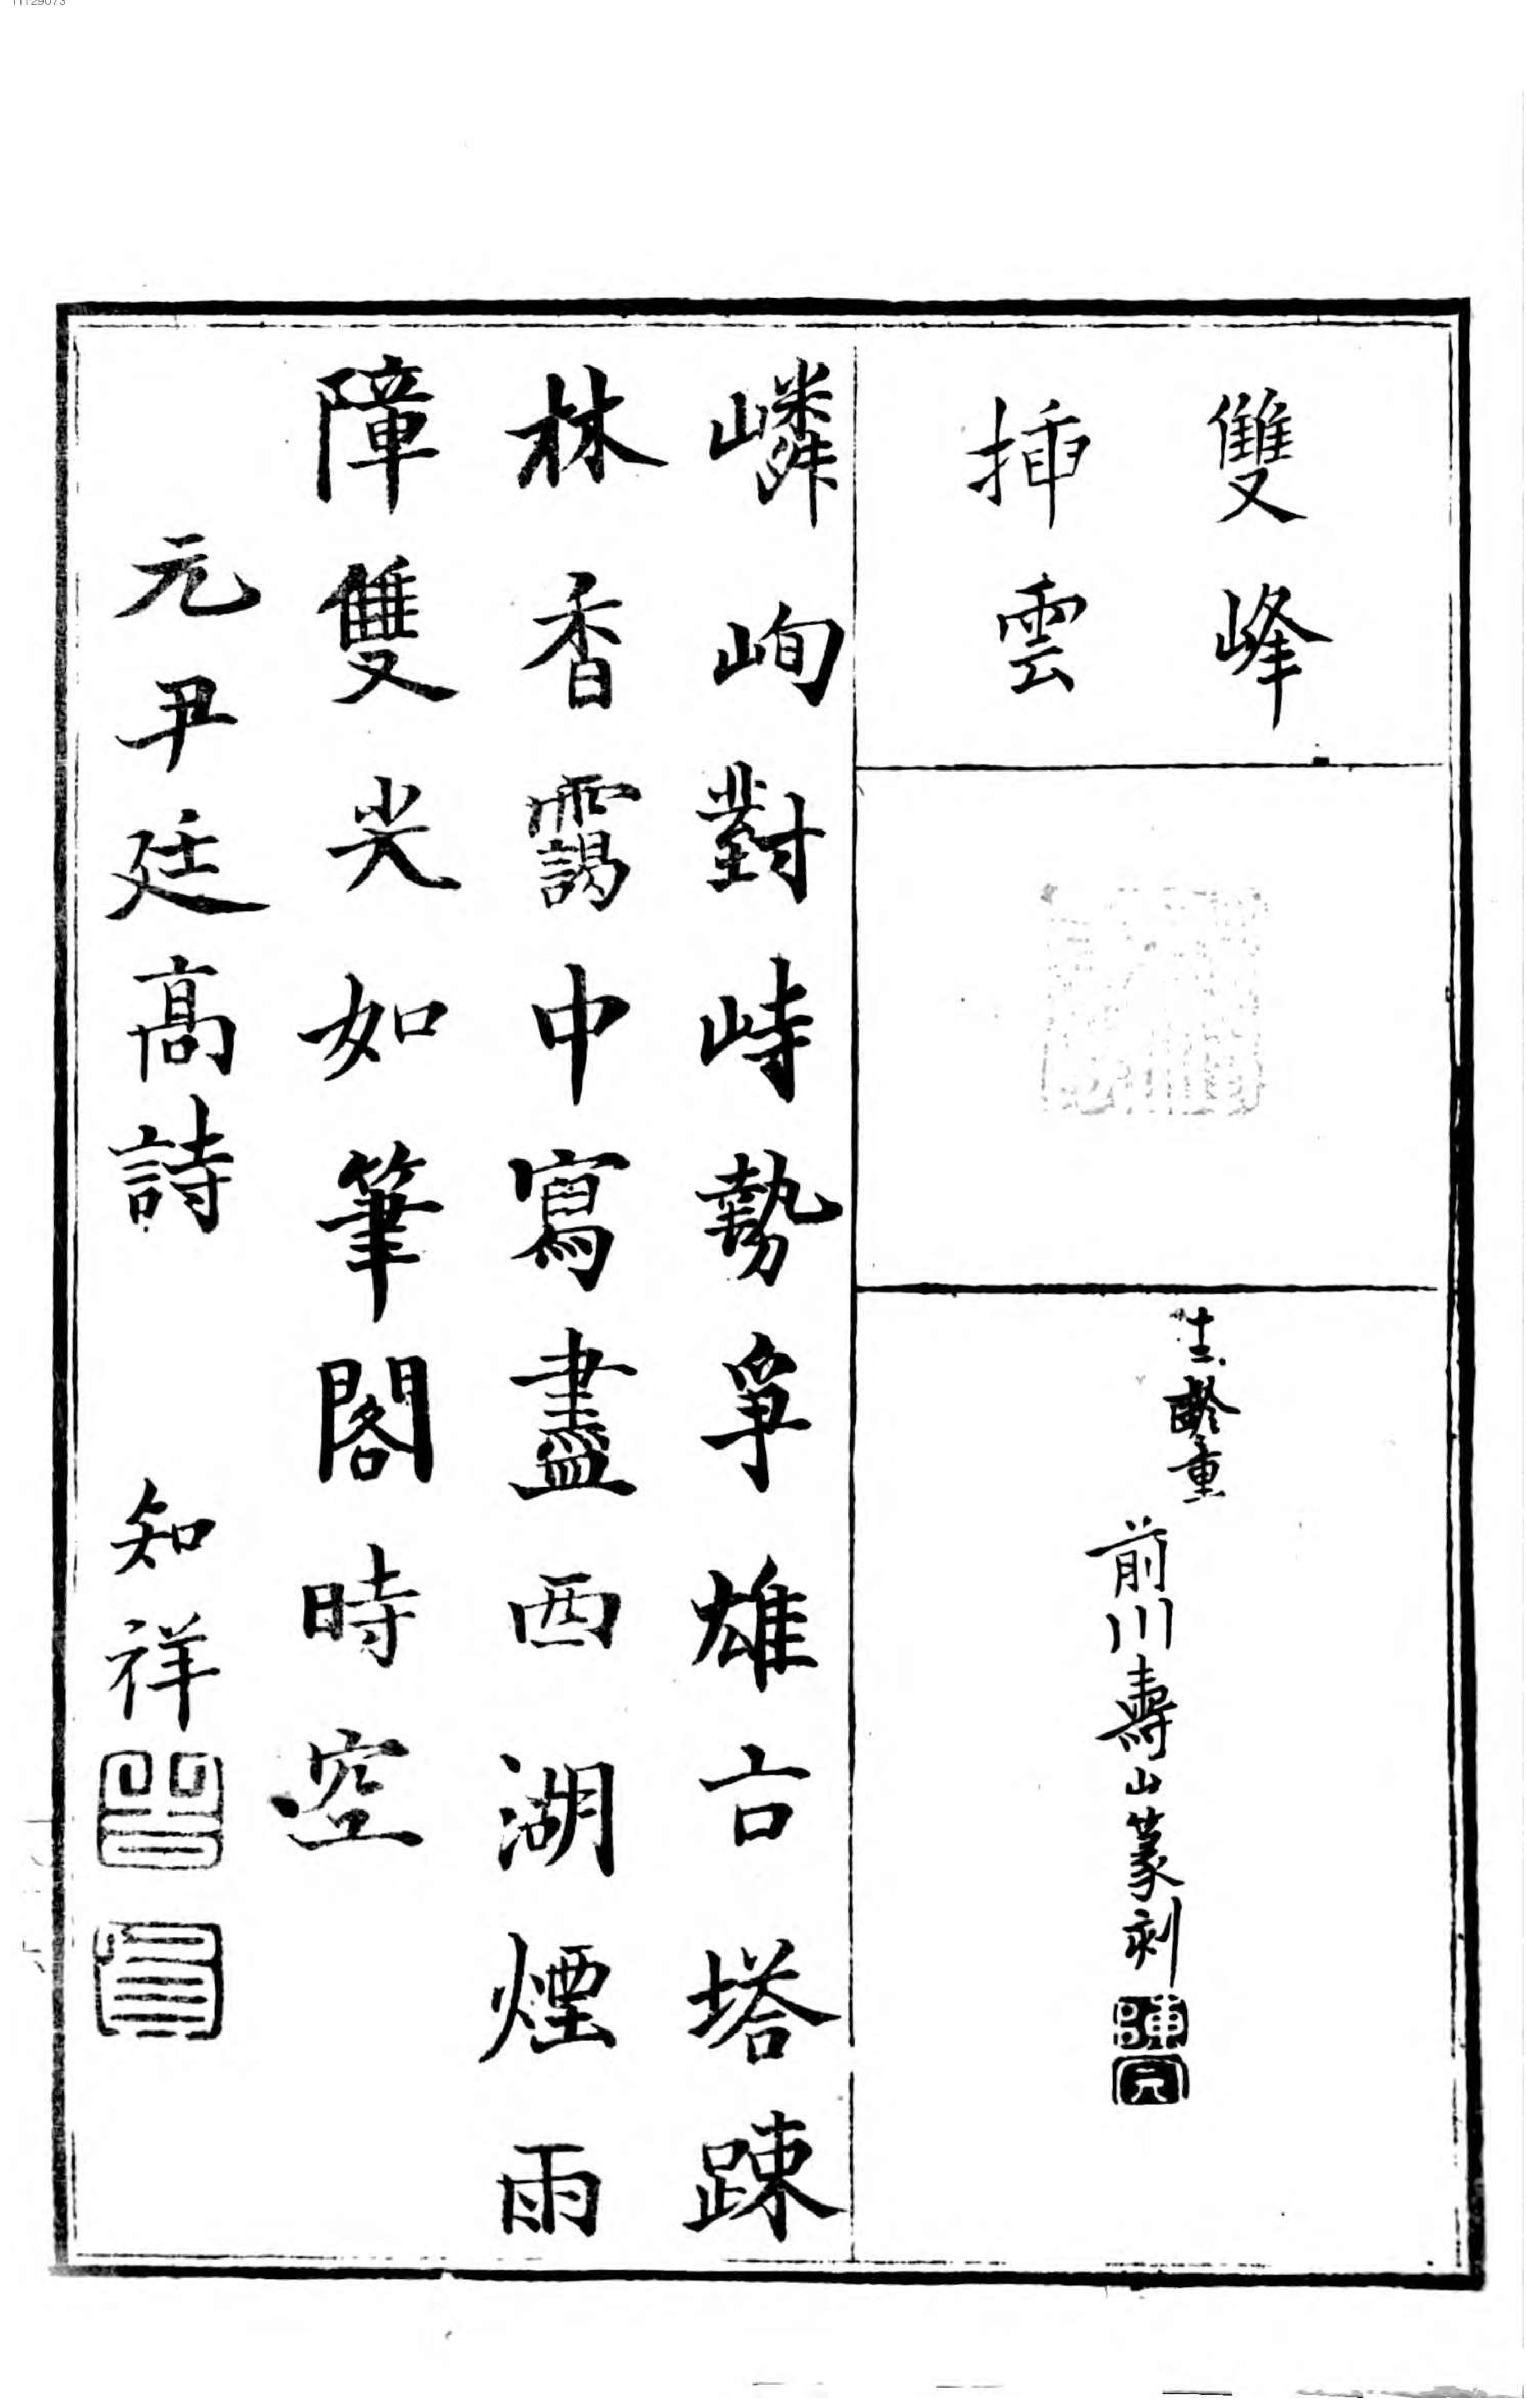 雙峰
插雲
十三齡童
前川壽山篆刻
嶙峋對峙勢爭雄古塔踈
林香靄中寫盡西湖煙雨
障雙尖如筆閣時空
元尹廷高詩
知祥